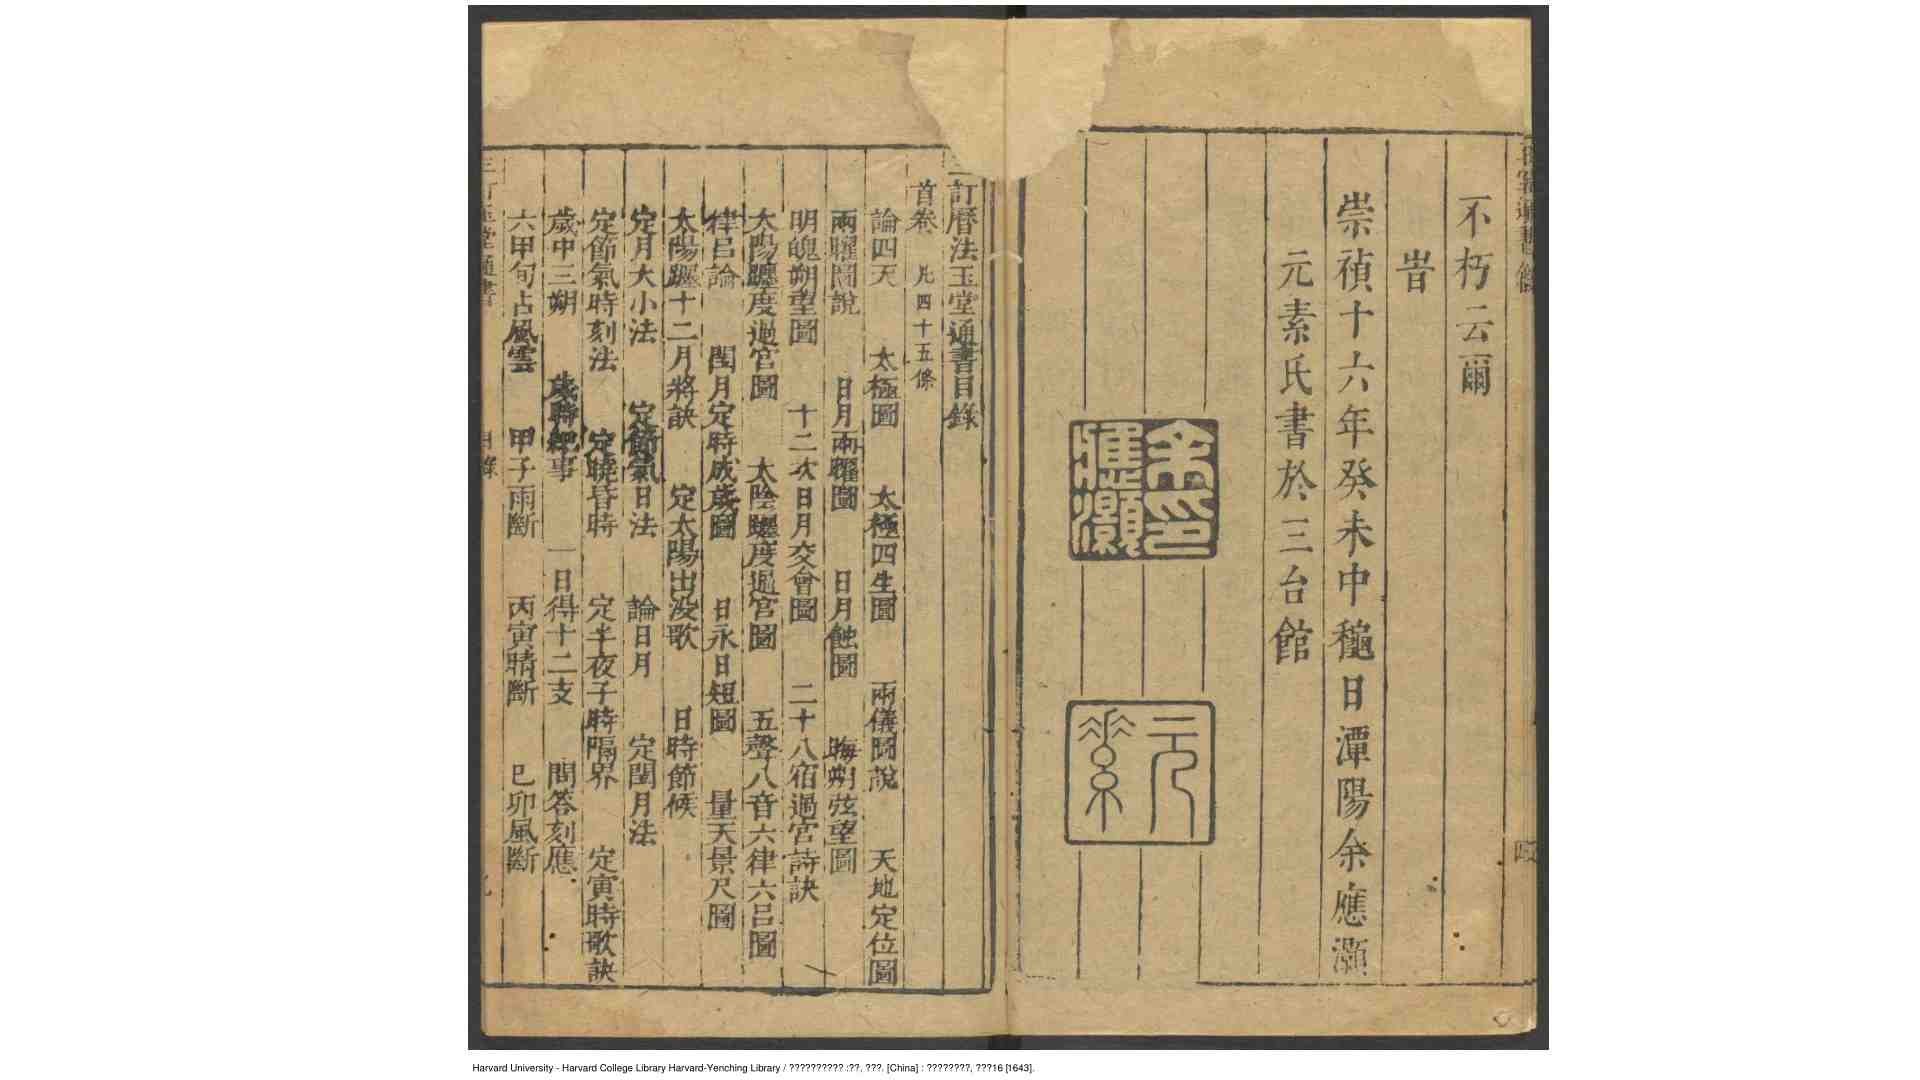 不朽云爾
旹
崇禎十六年癸未中龝日潭陽余應灝
元素氏書於三台館
余應灝印
元素
訂曆法玉堂通書目錄
首卷 凡四十五條
論四天 太極圖 太極四生圖 兩儀圖說 天地定位圖
兩曜圖說 日月兩曜圖 日月蝕圖 晦朔弦望圖
明魄朔望圖 十二次日月交會圖 二十八宿過宮詩訣
太陽躔度過宮圖 太陰躔度過宮圖 五聲八音六律六呂圖
律呂論 閏月定時成歲圖 日永日短圖 量天景尺圖
太陽躔十二月將訣 定太陽出没歌 日時節候
定月大小法 定節氣日法 論日月 定閏月法
定節氣時刻法 定曉昏時 定半夜子時隔界 定寅時歌訣
歲中三朔 歲時紀事 一日得十二支 問答刻應
六甲旬占風雲 甲子雨斷 丙寅晴斷 巳卯風斷
通書
目錄
Harvard University - Harvard College Library Harvard-Yenching Library / ?????????? :??, ???. [China] : ????????, ???16 [1643].